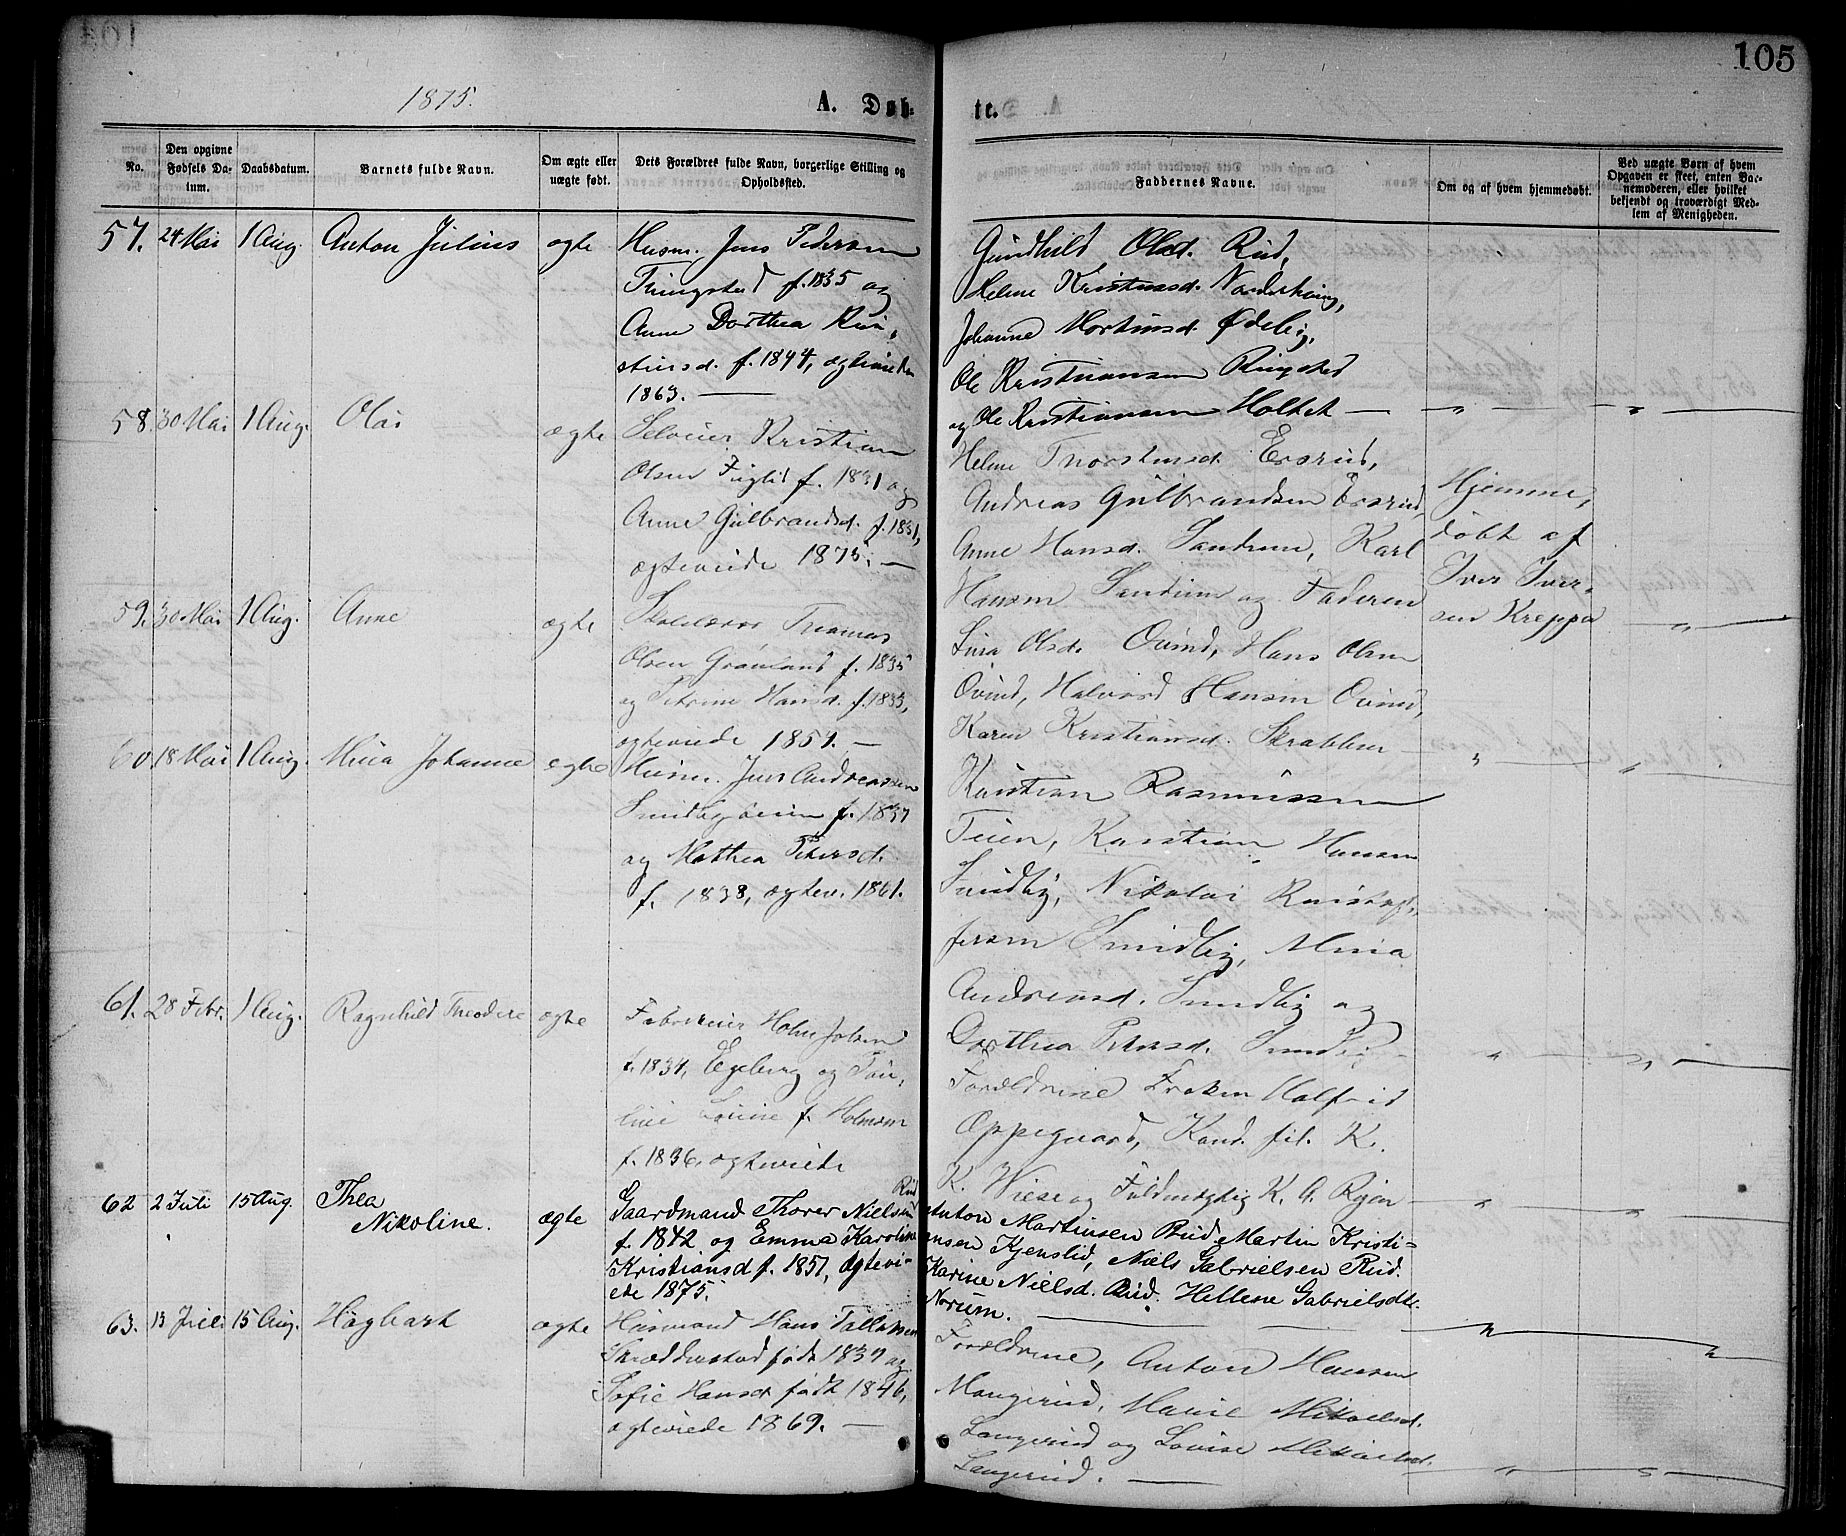 105
1875.
A. Døb-
te.
No.
Den opgivne
Fødsels Da-
tum.
Daabsdatum.
Barnets fulde Navn.
Om ægte eller
uægte født.
Dets Forældres fulde Navn, borgerlige Stilling og
Opholdssted.
Faddernes Navne.
Om og af hvem hjemmedøbt.
Ved uægte Børn af hvem
Opgaven er skeet, enten Bar-
nemoderen, eller hvilket
bekjendt og troværdigt Med-
lem af Menigheden.
57. 24 Mai 1 Aug. Anton Julius ægte
Husm. Jens Pedersen
Tingsted f. 1835 og
Anne Dorthea Kri-
stiansd. f. 1844, ægteviede
1863. —
Gundhild Olsd. Rud,
Helene Kristiansd.
Johanne Mortinsd. Ødeby,
Ole Kristiansen Ringsted
og Ole Kristiansen Holtet — „ — „
58. 30 Mai 1 Aug. Olai ægte
Selveier Kristian
Olsen Fuglid f. 1831 og
Anne Gulbrandsd. f. 1831,
ægteviede 1875. —
Helene Thorstensd. Ersrud,
Andreas Gulbrandsen Ersrud,
Anne Hansd. Sandum, Karl
Hansen Sandum og Faderen
Hjemme-
døbt af
Iver Iver-
sen Kreppa — „
59. 30 Mai 1 Aug. Anne ægte
Skolelærer Thomas
Olsen Grønland f. 1835
og Petrine Hansd. f. 1833,
ægteviede 1859. —
Lina Olsd. Ovind, Hans Olsen
Ovind, Halvard Hansen Ovind,
Karen Kristiansd. Skrabben — „ — „
60. 18 Mai 1 Aug. Mina Johanne ægte
Husm. Jens Andreassen
Smidbyeien f. 1837
og Mathea Petersd.
f. 1838, ægtev. 1861.
Kristian Rasmussen
Teien, Kristian Hansen
Smidby, Nikolai Kristof-
fersen Smidby, Mina
Andreasd. Smidby og
Dorthea Petersd. Smidby — „ — „
61. 28 Febr. 1 Aug. Ragnhild Theodore ægte
Holm Jolsen
f. 1834, Egeberg og Pau-
line Louise f. Holmsen
f. 1836, ægteviede
Forældrene, Frøken Halfrid
Oppegaard, Kand. fil. K.
K. Wiese og Fuldmægtig K. A. Ryen — „ — „
62 2 Juli 15 Aug. Thea
Nikoline. ægte
Gaardmand Thorer Nielsen Rud
f. 1842 og Emma Karoline
Kristiansd f. 1851, ægtevi-
ede 1875.
Anton Martinsen Rud. Martin Kristi=
ansen Kjenslid, Niels Gabrielsen Rud.
Karine Nielsd. Rud. Hellene Gabrielsdtr.
Norum. — „ — „
63. 13 Juli 15 Aug. Hagbart ægte
Husmand Hans Tollefsen
Skrædderstad født 1837 og
Sofie Hansd. født 1846,
ægteviede 1869. —
Forældrene, Anton Hansen
Mangerud, Marie Mikaelsd.
Langerud og Lovise Mikaelsd.
Langerud. — „ — „